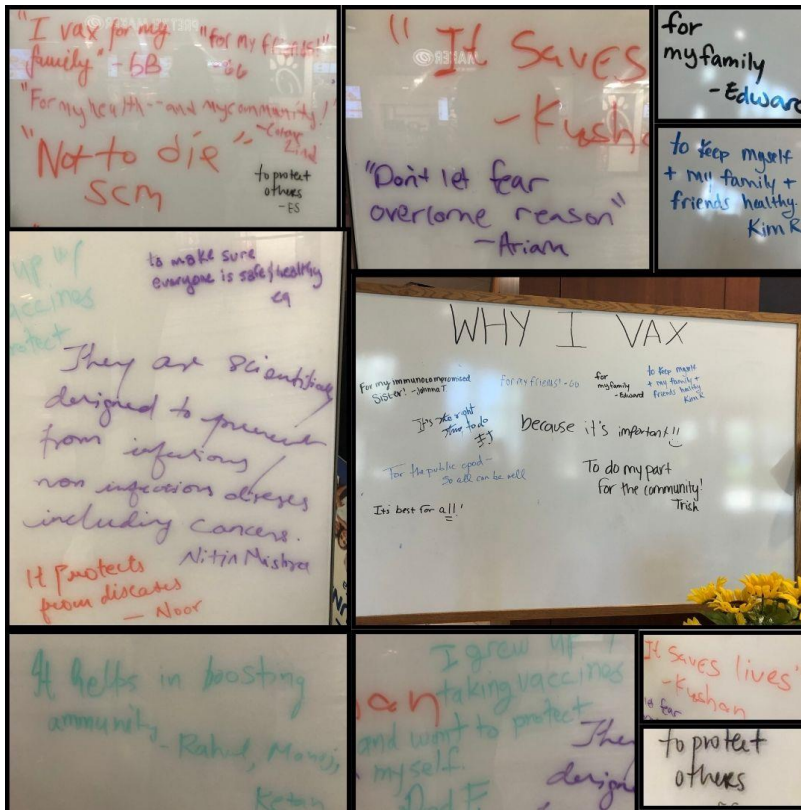 "I vax for my
family" - GB
"for my friends!"
- GG
"For my health -- and my community!"
"Not to die"
SCM
to protect
others
- ES
"It saves
- Kusha
"Don't let fear
overcome reason"
- Arian
for
my family
- Edward
to keep myself
+ my family +
friends healthy.
Kim R
up w/
accines
rotect
to make sure
everyone is safe & healthy
eq
They are scientifically
designed to prevent
from infectious
non infectious diseases
including cancers.
Nitin Mishra
It Protects
from diseases
- Noor
WHY I VAX
For my immunocompromised
Sister! - Johnna T
for my friends! - GG
for
my family
- Edward
to keep myself
+ my family +
friends healthy
Kim R
It's the right
thing to do
because it's important!!
For the public good -
So all can be well
To do my part
for the community!
Trish
It's best for all!!
It helps in boosting
ammunity
- Rahul, Manoj,
Ketan
han
I grew up
taking vaccines
and want to protect
myself.
They
design
It saves lives"
- Kushan
let fear
to protect
others